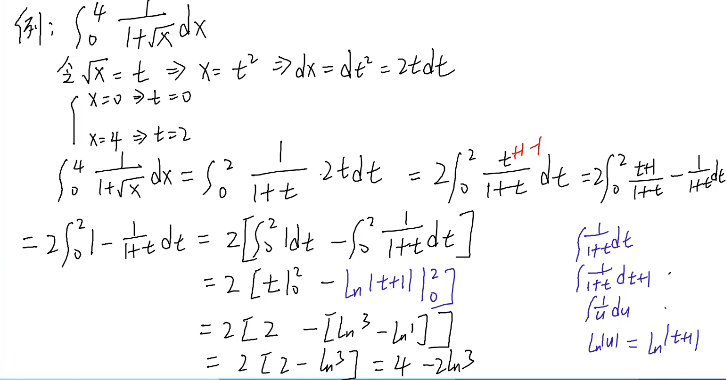 例: ∫₀⁴ 1/(1+√x) dx
令 √x = t ⇒ x = t² ⇒ dx = dt² = 2tdt
{ x=0 ⇒ t=0
x=4 ⇒ t=2
∫₀⁴ 1/(1+√x) dx = ∫₀² 1/(1+t) · 2tdt = 2∫₀² (t+1-1)/(1+t) dt = 2∫₀² (t+1)/(1+t) - 1/(1+t) dt
= 2∫₀² 1 - 1/(1+t) dt = 2[∫₀² 1dt - ∫₀² 1/(1+t) dt]
= 2[t|₀² - ln|t+1||₀²]
= 2[2 - [ln3 - ln1]]
= 2[2 - ln3] = 4 - 2ln3
∫ 1/(1+t) dt
∫ 1/(1+t) dt+1
∫ 1/u du
ln|u| = ln|t+1|